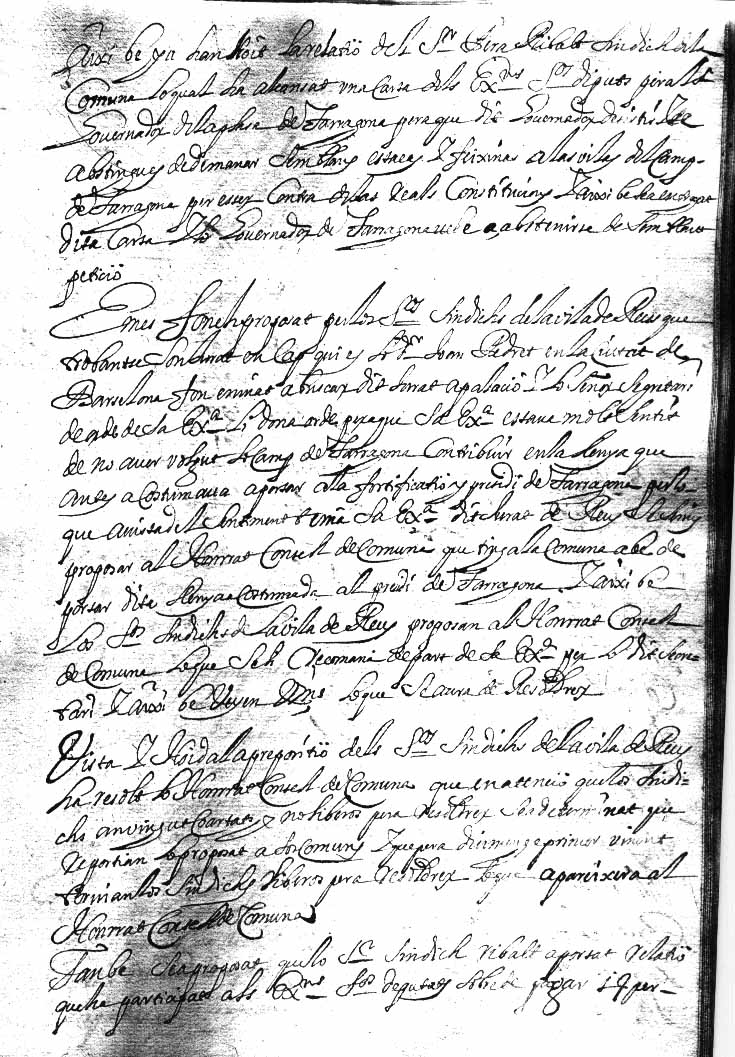 Aixi be ya han hoit la relatio del Sr Pera Ribalt Sindich de la
Comuna lo qual ha alcansat una Carta dels Exms Srs diputs pera lo
Governador de la plasa de Tarragona pera que dit Governador desistis Y se
abstingues de dimanar Semblans estacas Y feixinas a las vilas del Camp
de Tarragona per esser Contra de las reals Constitucions Y aixi be ha
dita Carta Y lo Governador de Tarragona de abstenirse de Semblant
petició
E mes fonch proposat per los Srs Sindichs de la vila de Reus que
trobantse son Jurat en Cap qui es lo dr Juan Padret en la Ciutat de
Barselona fon eninat a buscar dit Jurat a palacio Y lo Señor Segretari
de de Sa Exa li dona orde pera que Sa Exa estava molt sentit
de no aver volgut lo Camp de Tarragona Contribuir en la llenya que
an es a Costumava a portar a la fortificatio y presidi de Tarragona per lo
que a vista del sentiment tenia Sa Exa dit Jurat de Reus
proposar al Honrrat Consell de Comuna que tinga la Comuna a be de
portar dita llenya acostumada al presidi de Tarragona Y aixi be
Los Srs Sindichs de la vila de Reus proposan al Honrrat Consell
de Comuna lo que se li recomana de part de Sa Exa per lo dit Secre-
tari Y aixi be vejen Vms lo que se aura de Resoldrer
Vista Y Hoida la preposítio dels Srs Sindichs de la vila de Reus
ha resolt lo Honrrat Consell de Comuna que en atencio que los Sindi-
chs an vingut no liberos pera resoldrer Se a determinat que
reportian lo proposat a Sos Comuns Y que pera diumenge primer vinent
tornian los Sindichs liberos pera resoldrer lo que apareixera al
Honrrat Consell de Comuna
Tanbe se a proposat que lo Sr Sindich ribalt a portat relatio
que ha participat als Exms Srs deputats sobre de pagar per-